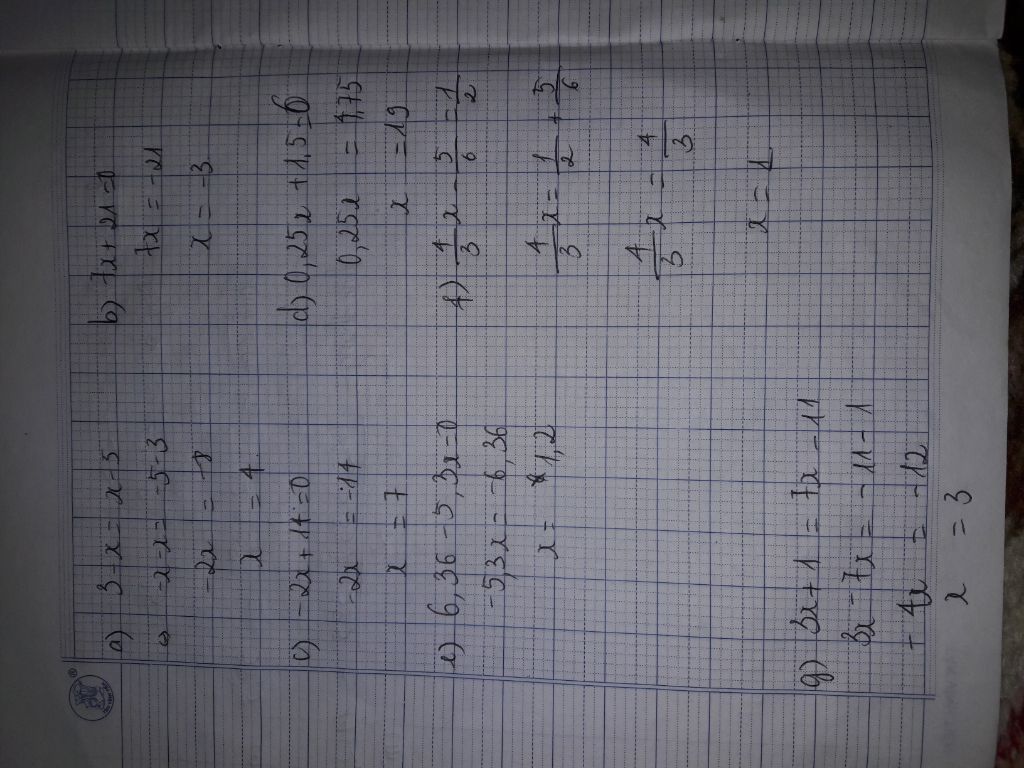 a) 3 - x = x - 5
-x - x = -5 - 3
-2x = -8
x = 4
b) 7x + 21 = 0
7x = -21
x = -3
c) -2x + 14 = 0
-2x = -14
x = 7
d) 0,25x + 1,5 = 6
0,25x = 4,75
x = 19
e) 6,36 - 5,3x = 0
-5,3x = -6,36
x = 1,2
f) 4/3 x - 5/6 = 1/2
4/3 x = 1/2 + 5/6
4/3 x = 4/3
x = 1
g) 3x + 1 = 7x - 11
3x - 7x = -11 - 1
-4x = -12
x = 3